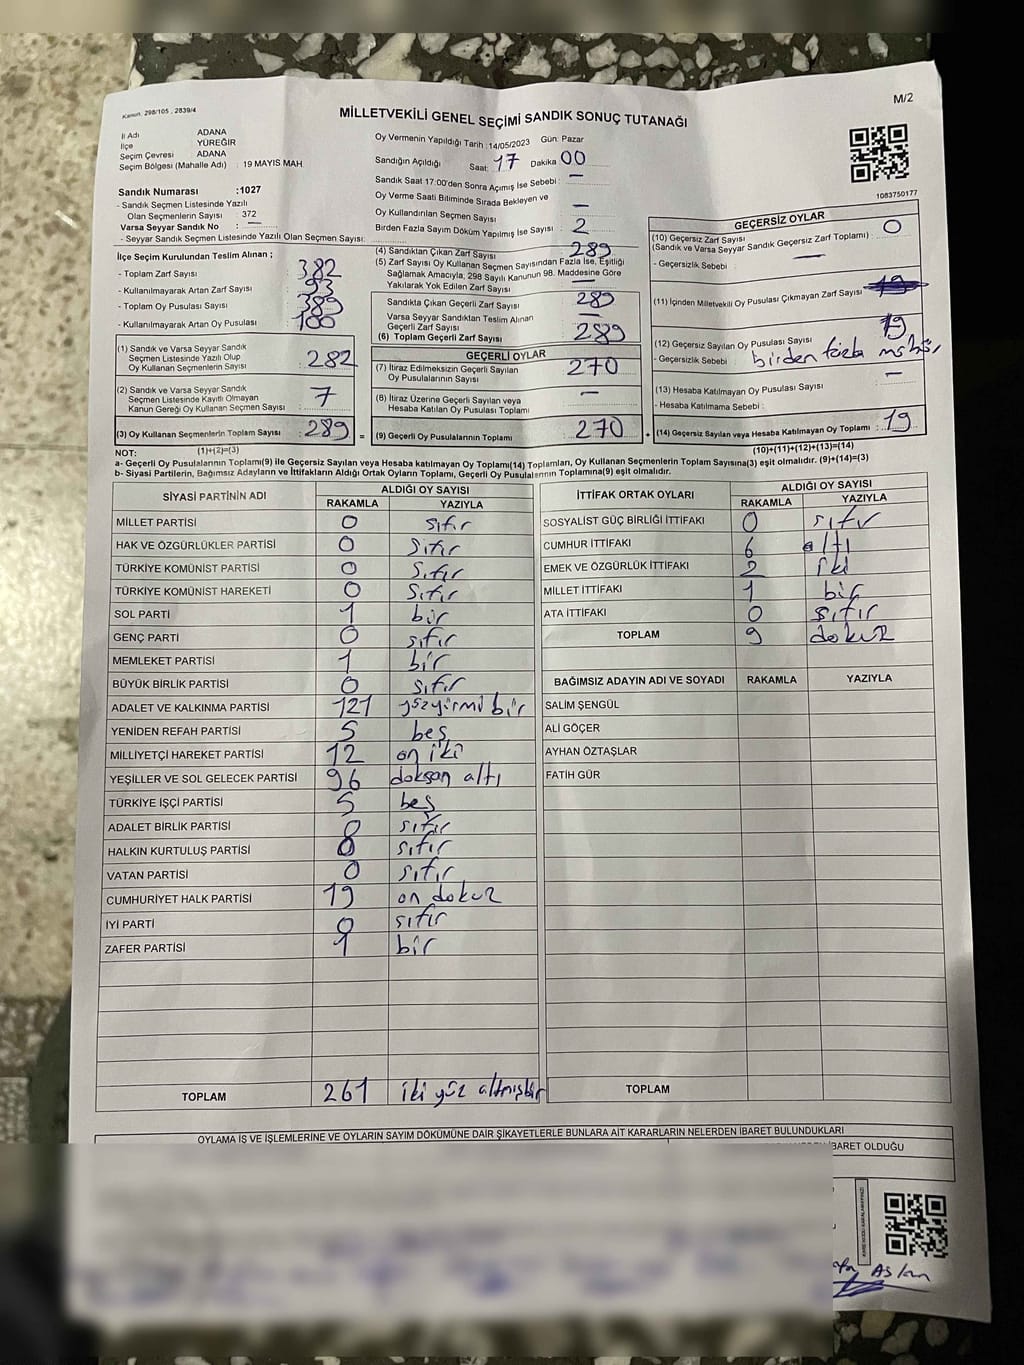 Kanun: 298/105 , 2839/4
M/2
MİLLETVEKİLİ GENEL SEÇİMİ SANDIK SONUÇ TUTANAĞI
İl Adı ADANA
İlçe YÜREĞİR
Seçim Çevresi ADANA
Seçim Bölgesi (Mahalle Adı) : 19 MAYIS MAH.
Sandık Numarası :1027
- Sandık Seçmen Listesinde Yazılı
Olan Seçmenlerin Sayısı : 372
Varsa Seyyar Sandık No : —
- Seyyar Sandık Seçmen Listesinde Yazılı Olan Seçmen Sayısı:
Oy Vermenin Yapıldığı Tarih :14/05/2023 Gün: Pazar
Sandığın Açıldığı Saat: 17 Dakika 00
Sandık Saat 17:00'den Sonra Açımış İse Sebebi : —
Oy Verme Saati Bitiminde Sırada Bekleyen ve
Oy Kullandırılan Seçmen Sayısı : —
Birden Fazla Sayım Döküm Yapılmış İse Sayısı : 2
1083750177
İlçe Seçim Kurulundan Teslim Alınan ;
- Toplam Zarf Sayısı : 382
- Kullanılmayarak Artan Zarf Sayısı : 93
- Toplam Oy Pusulası Sayısı : 389
- Kullanılmayarak Artan Oy Pusulası : 100
(1) Sandık ve Varsa Seyyar Sandık
Seçmen Listesinde Yazılı Olup
Oy Kullanan Seçmenlerin Sayısı : 282
(2) Sandık ve Varsa Seyyar Sandık
Seçmen Listesinde Kayıtlı Olmayan
Kanun Gereği Oy Kullanan Seçmen Sayısı : 7
(3) Oy Kullanan Seçmenlerin Toplam Sayısı : 289 =
(4) Sandıktan Çıkan Zarf Sayısı : 289
(5) Zarf Sayısı Oy Kullanan Seçmen Sayısından Fazla İse, Eşitliği
Sağlamak Amacıyla, 298 Sayılı Kanunun 98. Maddesine Göre
Yakılarak Yok Edilen Zarf Sayısı : —
Sandıkta Çıkan Geçerli Zarf Sayısı : 289
Varsa Seyyar Sandıktan Teslim Alınan
Geçerli Zarf Sayısı : —
(6) Toplam Geçerli Zarf Sayısı : 289
GEÇERLİ OYLAR
(7) İtiraz Edilmeksizin Geçerli Sayılan
Oy Pusulalarının Sayısı : 270
(8) İtiraz Üzerine Geçerli Sayılan veya
Hesaba Katılan Oy Pusulası Toplamı : —
(9) Geçerli Oy Pusulalarının Toplamı : 270 +
GEÇERSİZ OYLAR
(10) Geçersiz Zarf Sayısı
(Sandık ve Varsa Seyyar Sandık Geçersiz Zarf Toplamı) : 0
- Geçersizlik Sebebi : —
(11) İçinden Milletvekili Oy Pusulası Çıkmayan Zarf Sayısı :
(12) Geçersiz Sayılan Oy Pusulası Sayısı : 19
- Geçersizlik Sebebi : birden fazla
(13) Hesaba Katılmayan Oy Pusulası Sayısı : —
- Hesaba Katılmama Sebebi :
(14) Geçersiz Sayılan veya Hesaba Katılmayan Oy Toplamı : 19
NOT: (1)+(2)=(3) (10)+(11)+(12)+(13)=(14)
a- Geçerli Oy Pusulalarının Toplamı(9) ile Geçersiz Sayılan veya Hesaba katılmayan Oy Toplamı(14) Toplamları, Oy Kullanan Seçmenlerin Toplam Sayısına(3) eşit olmalıdır. (9)+(14)=(3)
b- Siyasi Partilerin, Bağımsız Adayların ve İttifakların Aldığı Ortak Oyların Toplamı, Geçerli Oy Pusulalarının Toplamına(9) eşit olmalıdır.
SİYASİ PARTİNİN ADI ALDIĞI OY SAYISI
RAKAMLA YAZIYLA
MİLLET PARTİSİ 0 sıfır
HAK VE ÖZGÜRLÜKLER PARTİSİ 0 sıfır
TÜRKİYE KOMÜNİST PARTİSİ 0 sıfır
TÜRKİYE KOMÜNİST HAREKETİ 0 sıfır
SOL PARTİ 1 bir
GENÇ PARTİ 0 sıfır
MEMLEKET PARTİSİ 1 bir
BÜYÜK BİRLİK PARTİSİ 0 sıfır
ADALET VE KALKINMA PARTİSİ 121 yüzyirmi bir
YENİDEN REFAH PARTİSİ 5 beş
MİLLİYETÇİ HAREKET PARTİSİ 12 on iki
YEŞİLLER VE SOL GELECEK PARTİSİ 96 doksan altı
TÜRKİYE İŞÇİ PARTİSİ 5 beş
ADALET BİRLİK PARTİSİ 0 sıfır
HALKIN KURTULUŞ PARTİSİ 0 sıfır
VATAN PARTİSİ 0 sıfır
CUMHURİYET HALK PARTİSİ 19 on dokuz
İYİ PARTİ 0 sıfır
ZAFER PARTİSİ 1 bir
TOPLAM 261 iki yüz altmışbir
İTTİFAK ORTAK OYLARI ALDIĞI OY SAYISI
RAKAMLA YAZIYLA
SOSYALİST GÜÇ BİRLİĞİ İTTİFAKI 0 sıfır
CUMHUR İTTİFAKI 6 altı
EMEK VE ÖZGÜRLÜK İTTİFAKI 2 iki
MİLLET İTTİFAKI 1 bir
ATA İTTİFAKI 0 sıfır
TOPLAM 9 dokuz
BAĞIMSIZ ADAYIN ADI VE SOYADI RAKAMLA YAZIYLA
SALİM ŞENGÜL
ALİ GÖÇER
AYHAN ÖZTAŞLAR
FATİH GÜR
TOPLAM
OYLAMA İŞ VE İŞLEMLERİNE VE OYLARIN SAYIM DÖKÜMÜNE DAİR ŞİKAYETLERLE BUNLARA AİT KARARLARIN NELERDEN İBARET BULUNDUKLARI
İBARET OLDUĞU
Aslan